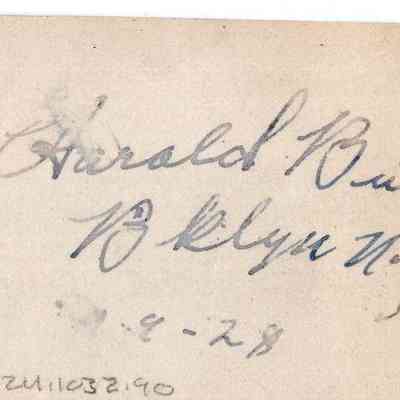 Harold Bu
Bklyn N.Y
9-28
24.1032.90